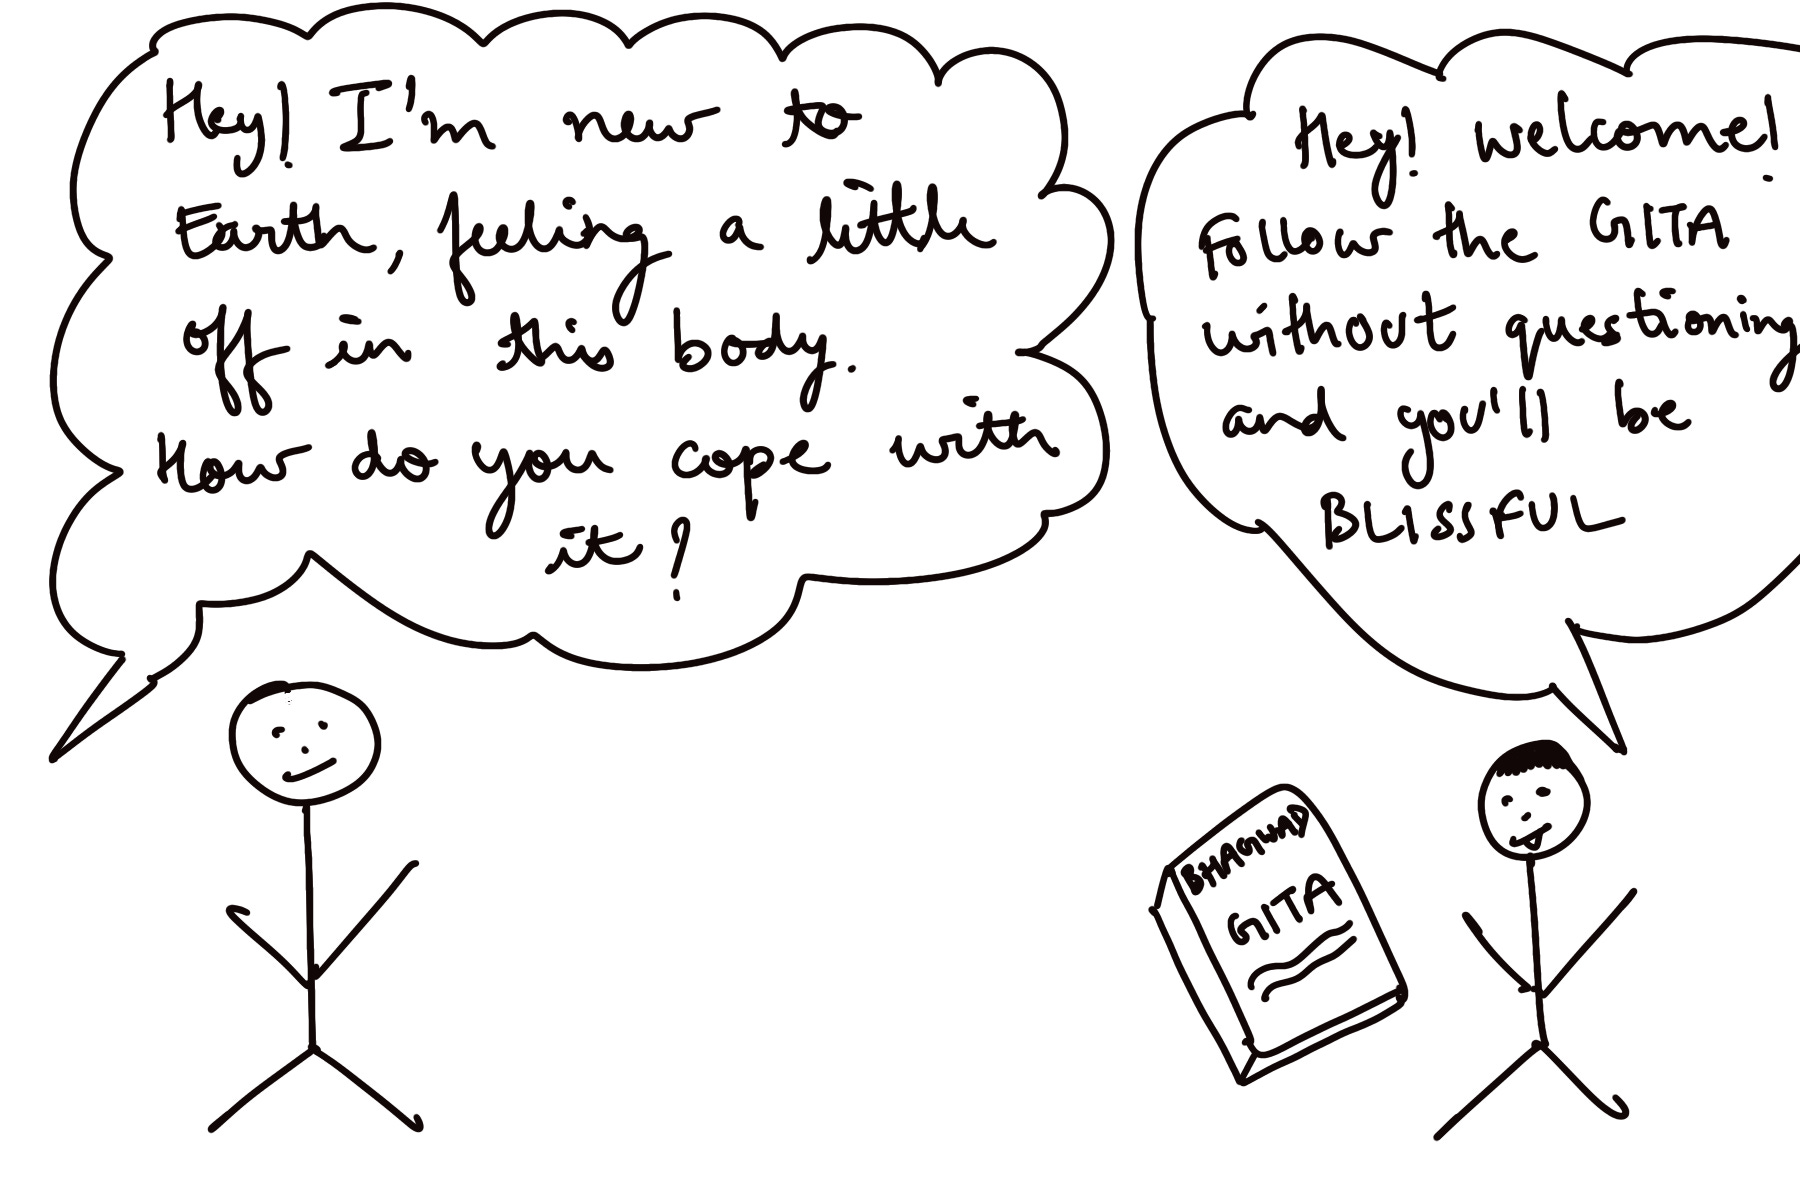 Hey! I'm new to
Earth, feeling a little
off in this body.
How do you cope with
it?
Hey! welcome!
Follow the GITA
without questioning
and you'll be
BLISSFUL
BHAGWAD
GITA